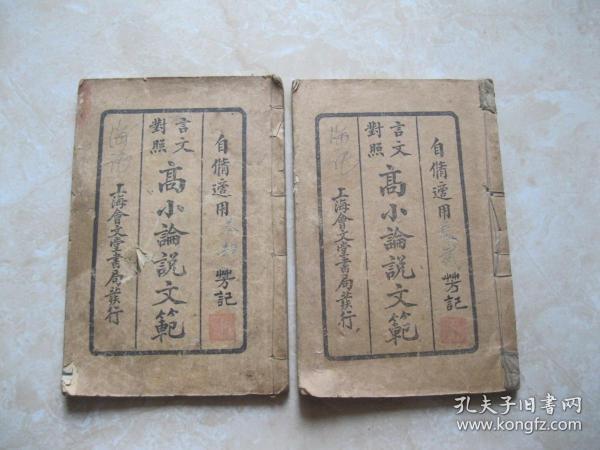 自備適用
芳記
言文
對照
高小論說文範
上海會文堂書局發行
自備適用
芳記
言文
對照
高小論說文範
上海會文堂書局發行
孔夫子旧书网
www.kongfz.com